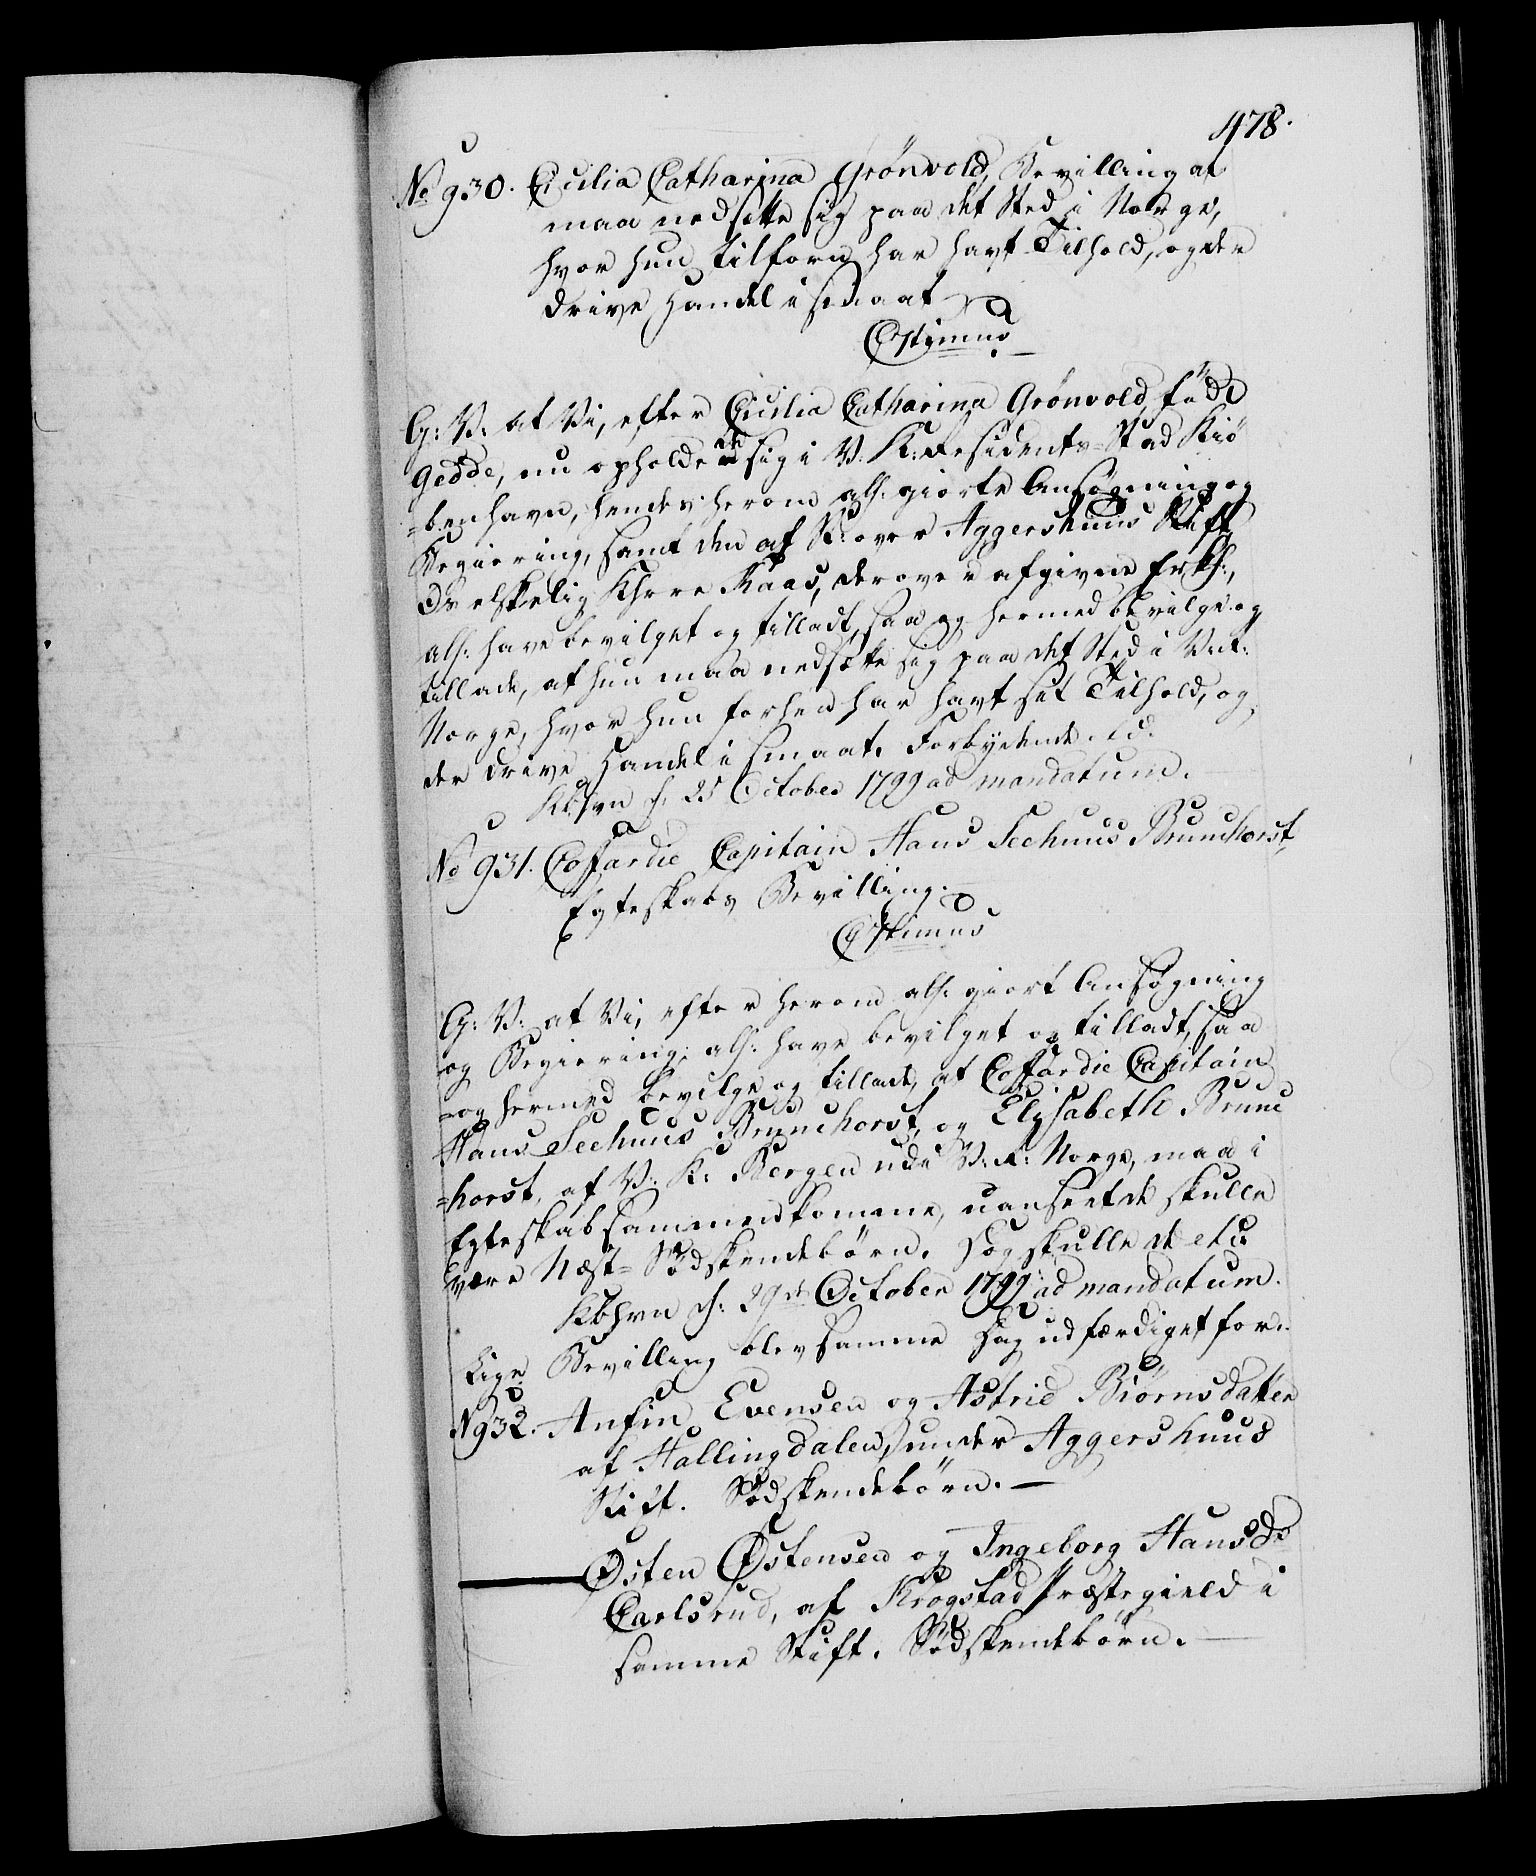 478.
No 930. Cicilia Catharina Grönvold, Bevilling at
maa nedsætte sig paa det Sted i Norge,
hvor hun tilforn har havt Tilhold, og der
drive Handel i smaat
C 7timus
G: V: at Vi, efter Cicilia Catharina Grönvold, föd
Gedde, nu opholdende sig i V. K: Residents-Stad Kiö
=benhavn, hendes herom all: giorte Ansøgning og
Begiering, samt den af St: over Aggershuus Stift
Os elskelig Khrre Kaas, derover afgivne Erkl:,
all: have bevilget og tilladt, saa og hermed bevilge og
tillade, at hun maa nedsætte sig paa det Sted i V: rt:
Norge, hvor hun forhen har havt sit Tilhold, og
der drive Handel i smaat. Forbydende etc.
Kbhvn d. 25 October 1799 ad mandatum.
No 931. Coffardie Capitain Hans Seehuus Brunchorst,
Egteskabs Bevilling.
C 7timus
G: V: at Vi, efter herom all: giort Ansøgning
og Begiering, all: have bevilget og tilladt, saa
og hermed bevilge og tillade, at Coffardie Capitain
Hans Seehuus Brunchorst, og Elisabeth Brunc
=horst, af V: K: Bergen udi V: R: Norge, maa i
Egteskab sammenkomme, uanseet de skulle
være Næst-Södskendebörn. Dog skulle de etc
Kbhvn d: 29de October 1799: ad mandatum.
Lige Bevilling blev samme Dag udfærdiget for:
N 932. Anfin Evensen og Astrid Biörnsdatter
af Hallingdalen, under Aggershuus
Stift. Södskendebörn. —
Østen Østensen og Ingeborg Hansdr
Carlsrud, af Krogstad Præstegield i
samme Stift. Södskendebörn. —